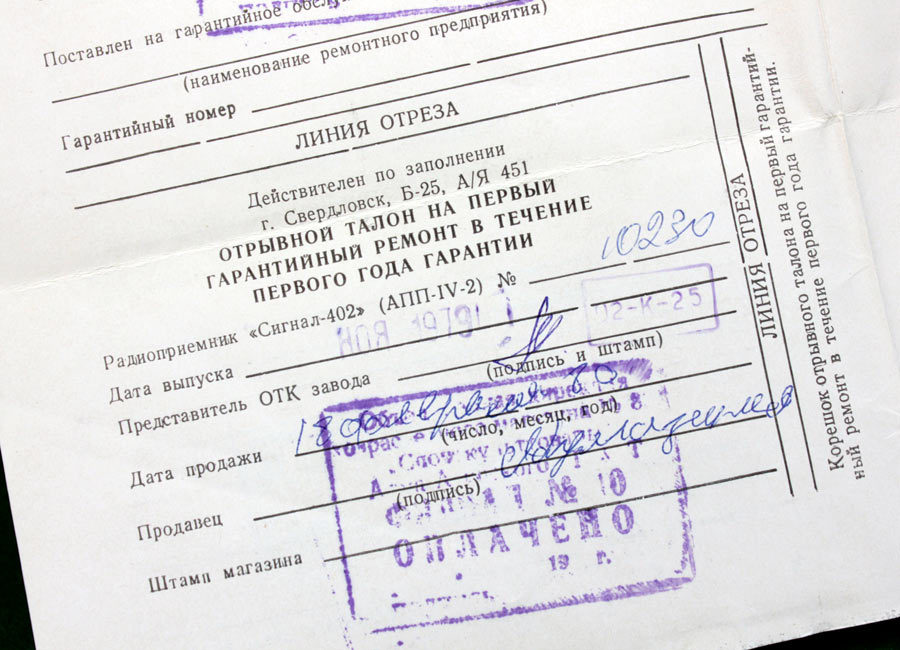 Поставлен на гарантийное
(наименование ремонтного предприятия)
Гарантийный номер
ЛИНИЯ ОТРЕЗА
Действителен по заполнении
г. Свердловск, Б-25, А/Я 451
ОТРЫВНОЙ ТАЛОН НА ПЕРВЫЙ
ГАРАНТИЙНЫЙ РЕМОНТ В ТЕЧЕНИЕ
ПЕРВОГО ГОДА ГАРАНТИИ
Радиоприемник «Сигнал-402» (АПП-IV-2) № 10230
Дата выпуска НОЯ 1979
02-К-25
Представитель ОТК завода
(подпись и штамп)
Дата продажи 18 февраля 80
(число, месяц, год)
Продавец
(подпись)
Штамп магазина
№ 10
ОПЛАЧЕНО
19 г.
ЛИНИЯ ОТРЕЗА
Корешок отрывного талона на первый гарантий-
ный ремонт в течение первого года гарантии.